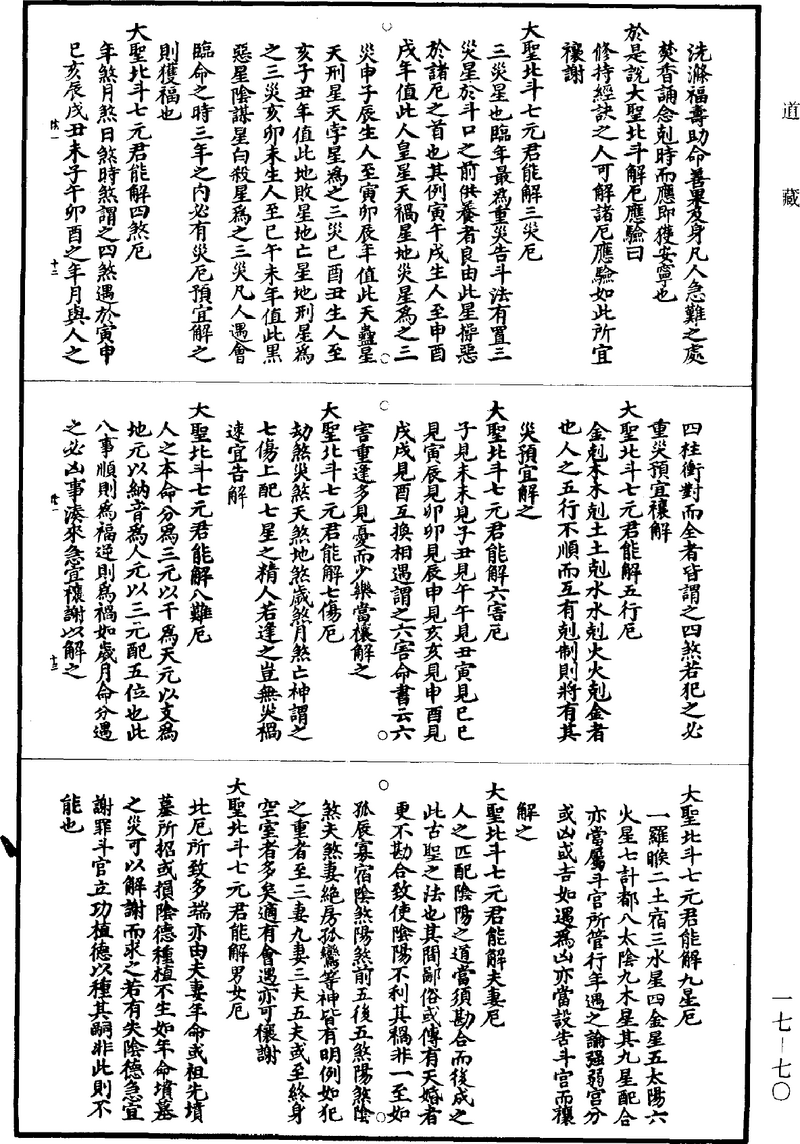 道藏
洗滌福壽助命善果及身凡人急難之處
焚香誦念剋時而應即獲安寧也
於是說大聖北斗解厄應驗曰
修持經訣之人可解諸厄應驗如此所宜
禳謝
大聖北斗七元君能解三災厄
三災星也臨年最為重災告斗法有置三
災星於斗口之前供養者良由此星擰惡
於諸厄之首也其例寅午戌生人至申酉
戌年值此人皇星天禍星地災星為之三
災申子辰生人至寅卯辰年值此天蠱星
天刑星天孛星為之三災巳酉丑生人至
亥子丑年值此地敗星地亡星地刑星為
之三災亥卯未生人至巳午未年值此黑
惡星陰謀星白殺星為之三災凡人遇會
臨命之時三年之內必有災厄預宜解之
則獲福也
大聖北斗七元君能解四煞厄
年煞月煞日煞時煞謂之四煞遇於寅申
巳亥辰戌丑未子午卯酉之年月與人之
四柱衝對而全者皆謂之四煞若犯之必
重災預宜禳解
大聖北斗七元君能解五行厄
金剋木木剋土土剋水水剋火火剋金者
也人之五行不順而互有剋制則將有其
災預宜解之
大聖北斗七元君能解六害厄
子見未未見子丑見午午見丑寅見巳巳
見寅辰見卯卯見辰申見亥亥見申酉見
戌戌見酉互換相遇謂之六害命書云六
害重逢多見憂而少樂當禳解之
大聖北斗七元君能解七傷厄
劫煞災煞天煞地煞歲煞月煞亡神謂之
七傷上配七星之精人若逢之豈無災禍
速宜告解
大聖北斗七元君能解八難厄
人之本命分為三元以干為天元以支為
地元以納音為人元以三元配五位也此
八事順則為福逆則為禍如歲月命分遇
之必凶事湊來急宜禳謝以解之
大聖北斗七元君能解九星厄
一羅睺二土宿三水星四金星五太陽六
火星七計都八太陰九木星其九星配合
亦當屬斗官所管行年遇之論強弱宮分
或凶或吉如遇為凶亦當設告斗官而禳
解之
大聖北斗七元君能解夫妻厄
人之匹配陰陽之道當須勘合而後成之
此古聖之法也其間鄙俗或傳有天婚者
更不勘合致使陰陽不利其禍非一至如
孤辰寡宿陰煞陽煞前五後五煞陽煞陰
煞夫煞妻絕房孤鸞等神皆有明例如犯
之重者至三妻九妻三夫五夫或至終身
空室者多矣適有會遇亦可禳謝
大聖北斗七元君能解男女厄
此厄所致多端亦由夫妻年命或祖先墳
墓所招或損陰德種植不生如年命墳墓
之災可以解謝而求之若有失陰德急宜
謝罪斗官立功植德以種其嗣非此則不
能也
一七—七〇